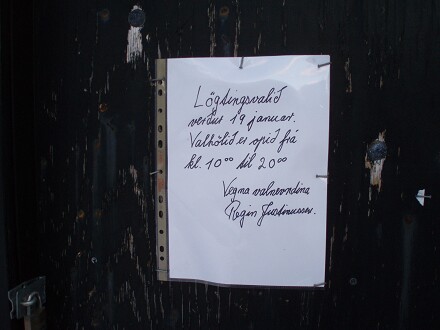 Lögtingsvalið
verður 19 januar.
Valhólið er opið frá
kl. 10⁰⁰ til 20⁰⁰
Vegna valnevndina
Regin Justinussen.